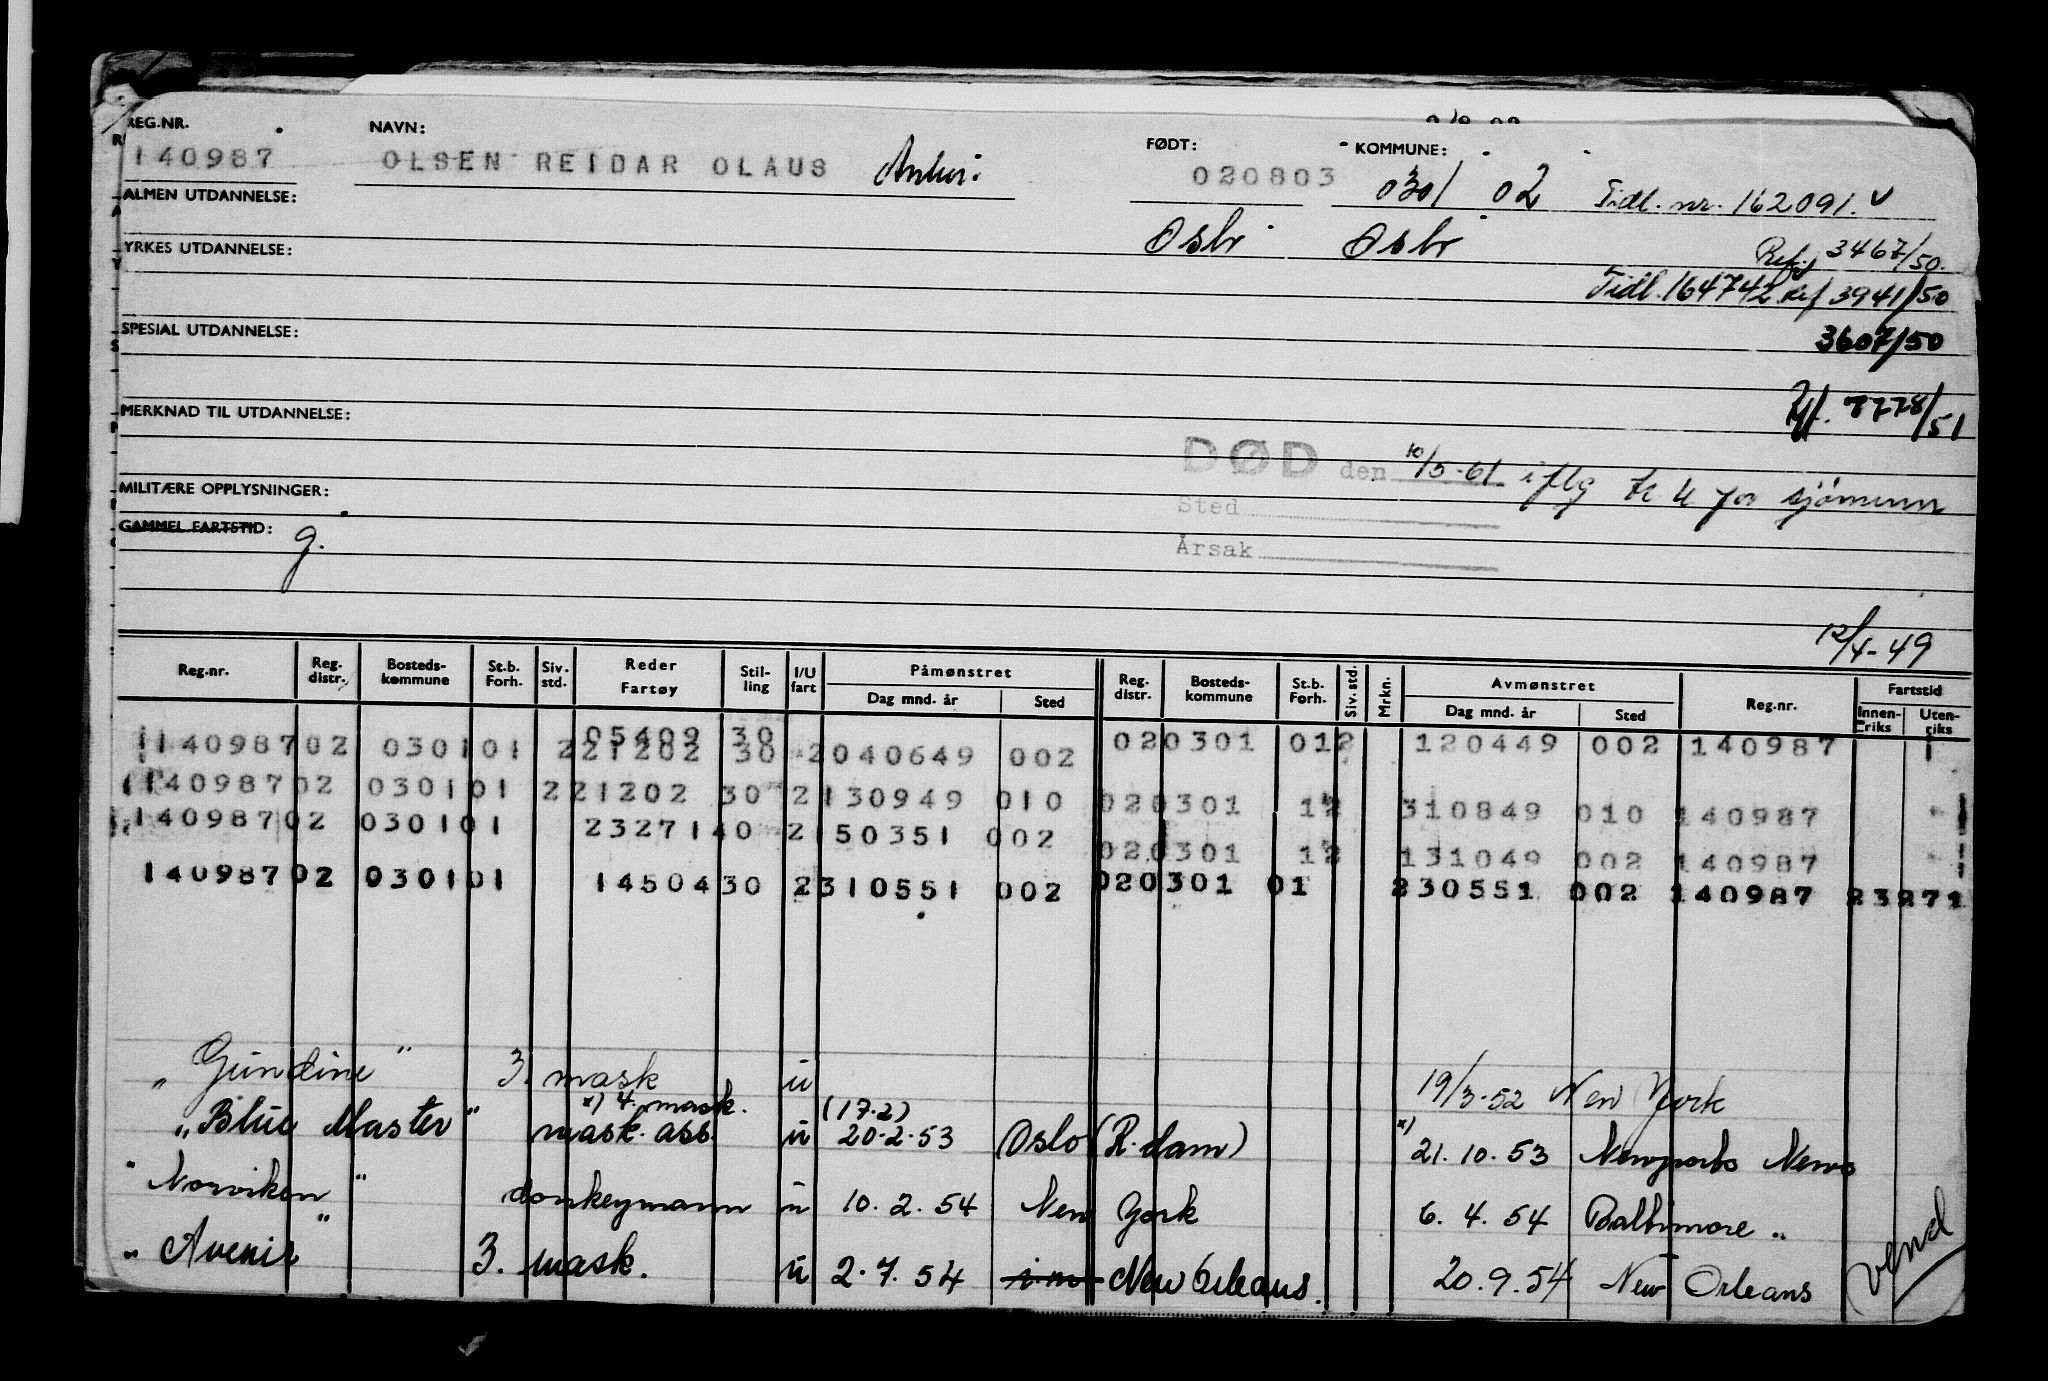 REG.NR. NAVN: FØDT: KOMMUNE:
140987 OLSEN REIDAR OLAUS 020803 0301 02 Tidl. nr. 162091. v
ALMEN UTDANNELSE:
Oslo Oslo
YRKES UTDANNELSE: Ref. 3467/50.
Tidl. 164742 Ref 3941/50
SPESIAL UTDANNELSE: 3607/50
MERKNAD TIL UTDANNELSE: 7778/51
DØD den 10/5-61 iflg
MILITÆRE OPPLYSNINGER: Sted
GAMMEL FARTSTID: g.
Årsak
12/4-49
Reg.nr. Reg. distr. Bosteds-kommune St.b. Forh. Siv. std. Reder Fartøy Stil-ling I/U fart Påmønstret Dag mnd. år Sted Reg. distr. Bosteds-kommune St.b. Forh. Siv. std. Mrkn. Avmønstret Dag mnd. år Sted Reg.nr. Fartstid Innen-riks Uten-riks
05409 30 020301 012 120449 002 140987
140987 02 0301 01 2 21202 30 2 040649 002
140987 02 0301 01 2 21202 30 2 130949 010 020301 12 310849 010 140987
140987 02 0301 01 23271 40 2 150351 002
020301 12 131049 002 140987
140987 02 0301 01 14504 30 2 310551 002 020301 01 230551 002 140987 23271
„Gundine" 3. mask u 19/3-52 New York
x) 4. mask. (17.2)
„Blue Master" mask. ass. u 20.2.53 Oslo (R.dam) x) 21.10.53 Newports News
"Norviken" donkeymann u 10.2.54 New York 6.4.54 Baltimore „
„Avenir" 3. mask. u 2.7.54 New Orleans. 20.9.54 New Orleans
vend